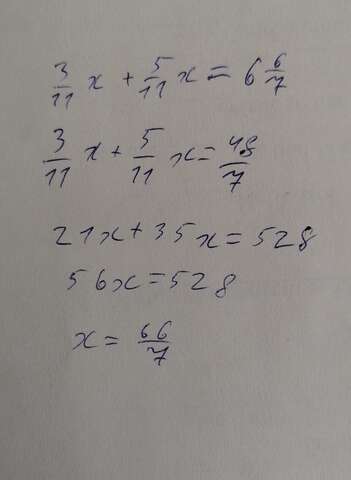 3/11 x + 5/11 x = 6 6/7
3/11 x + 5/11 x = 48/7
21x + 35x = 528
56x = 528
x = 66/7